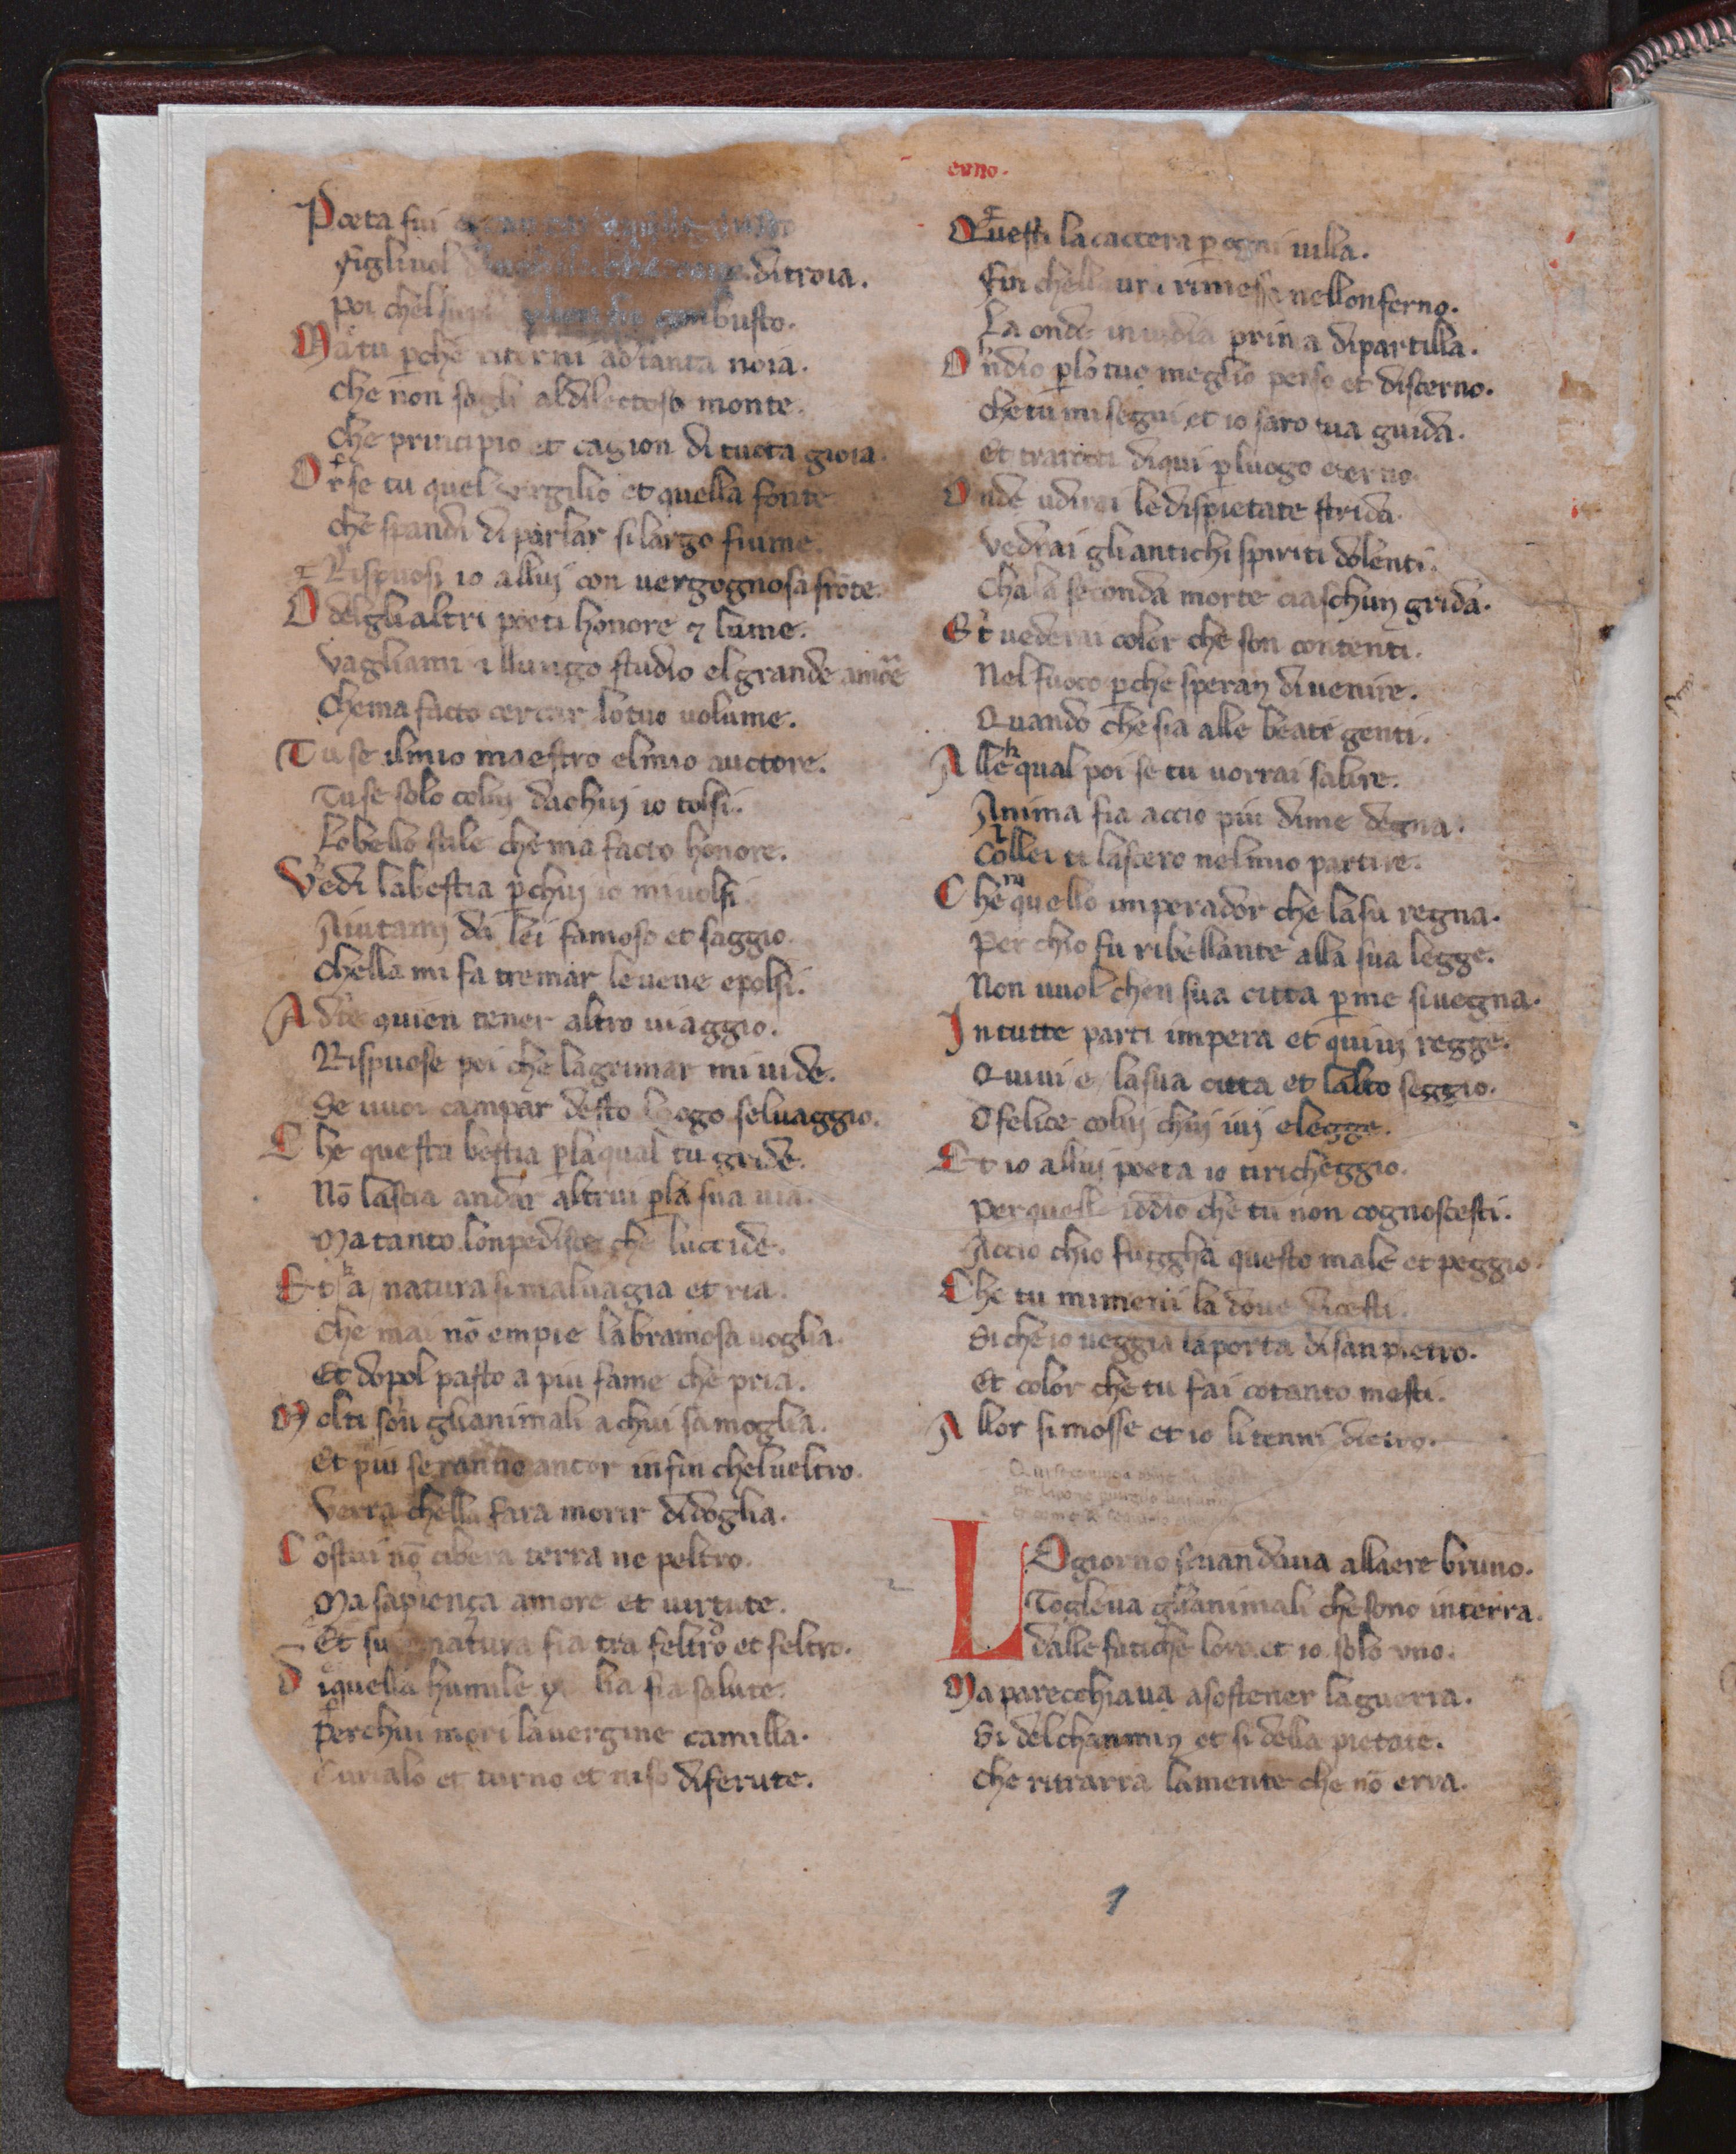 Poeta fui
figliuol ditroia.
poi chel busto.
Ma tu pche ritorni ad tanta noia.
che non sagli aldilectoso monte.
che principio et cagion di tucta gioia.
Or se tu quel virgilio et quella fonte
che spandi di parlar silargo fiume.
Rispuosi io alluj con uergognosa frōte.
O delglialtri poeti honore ⁊ lume.
Vagliami illungo studio elgrande amore
Chema facto cercar lotuo uolume.
Tu se ilmio maestro elmio auctore.
Tuse solo coluj dachuj io tolsi.
Lobello stile chema facto honore.
Vedi labestia pchuj io miuolsi
Aiutamj da lei famoso et saggio.
chella mi fa tremar leuene epolsi.
Adte quien tener altro uiaggio.
Rispuose poi che lagrimar mi uide.
Se uuoi campar desto luogo seluaggio.
Che questa bestia plaqual tu gride.
Nō lascia andar altrui pla sua uia.
Ma tanto lonpedisce che luccide.
Et a natura simaluagia et ria.
che mai nō empie labramosa uoglia.
Et dopol pasto a piu fame che pria.
Molti son glianimali achui samoglia.
Et piu seranno ancor infin chelueltro.
Verra chella fara morir didoglia.
Costui nō cibera terra ne peltro.
Ma sapiença amore et uirtute.
Et sua natura fia tra feltro et feltro.
Diquella humile fia salute.
Perchui mori lauergine camilla.
Eurialo et turno et niso diferute.
erno.
Questi lacaccera p ogni uilla.
Fin chella ura rimessa nellonferno.
La onde inuidia prima dipartilla.
Ondio plo tuo meglio penso et discerno.
che tu mi segui et io saro tua guida.
et trarotti diqui pluogo eterno.
Onde udirai ledispietate strida.
Vedrai gliantichi spiriti dolenti.
Chala seconda morte ciaschun grida.
Et uederai color che son contenti.
Nel fuoco pche speran diuenire.
Quando che sia alle beate genti.
Alle qual poi se tu uorrai salire.
Anima fia accio piu dime degna.
Collei ti lascero nelmio partire.
Che quello imperador che lasu regna.
Per chio fu ribellante alla sua legge.
Non uuol chen sua citta pme siuegna.
In tutte parti impera et quiuj regge.
Quiui e lasua citta et lalto seggio.
O felice coluj chuj iuj elegge.
Et io alluj poeta io tiricheggio.
Per quello iddio che tu non cognoscesti.
Accio chio fuggha questo male et peggio.
Che tu mimeni la doue dicesti.
Si che io ueggia laporta disan pietro.
Et color che tu fai cotanto mesti.
Allor simosse et io litenni dietro.
LO giorno senandaua allaere bruno.
Togleua glianimali che sono interra.
dalle fatiche loro et io solo vno.
Maparecchiaua asostener laguerra.
Si delchammin et si della pietate.
che ritrarra lamente che nō erra.
1